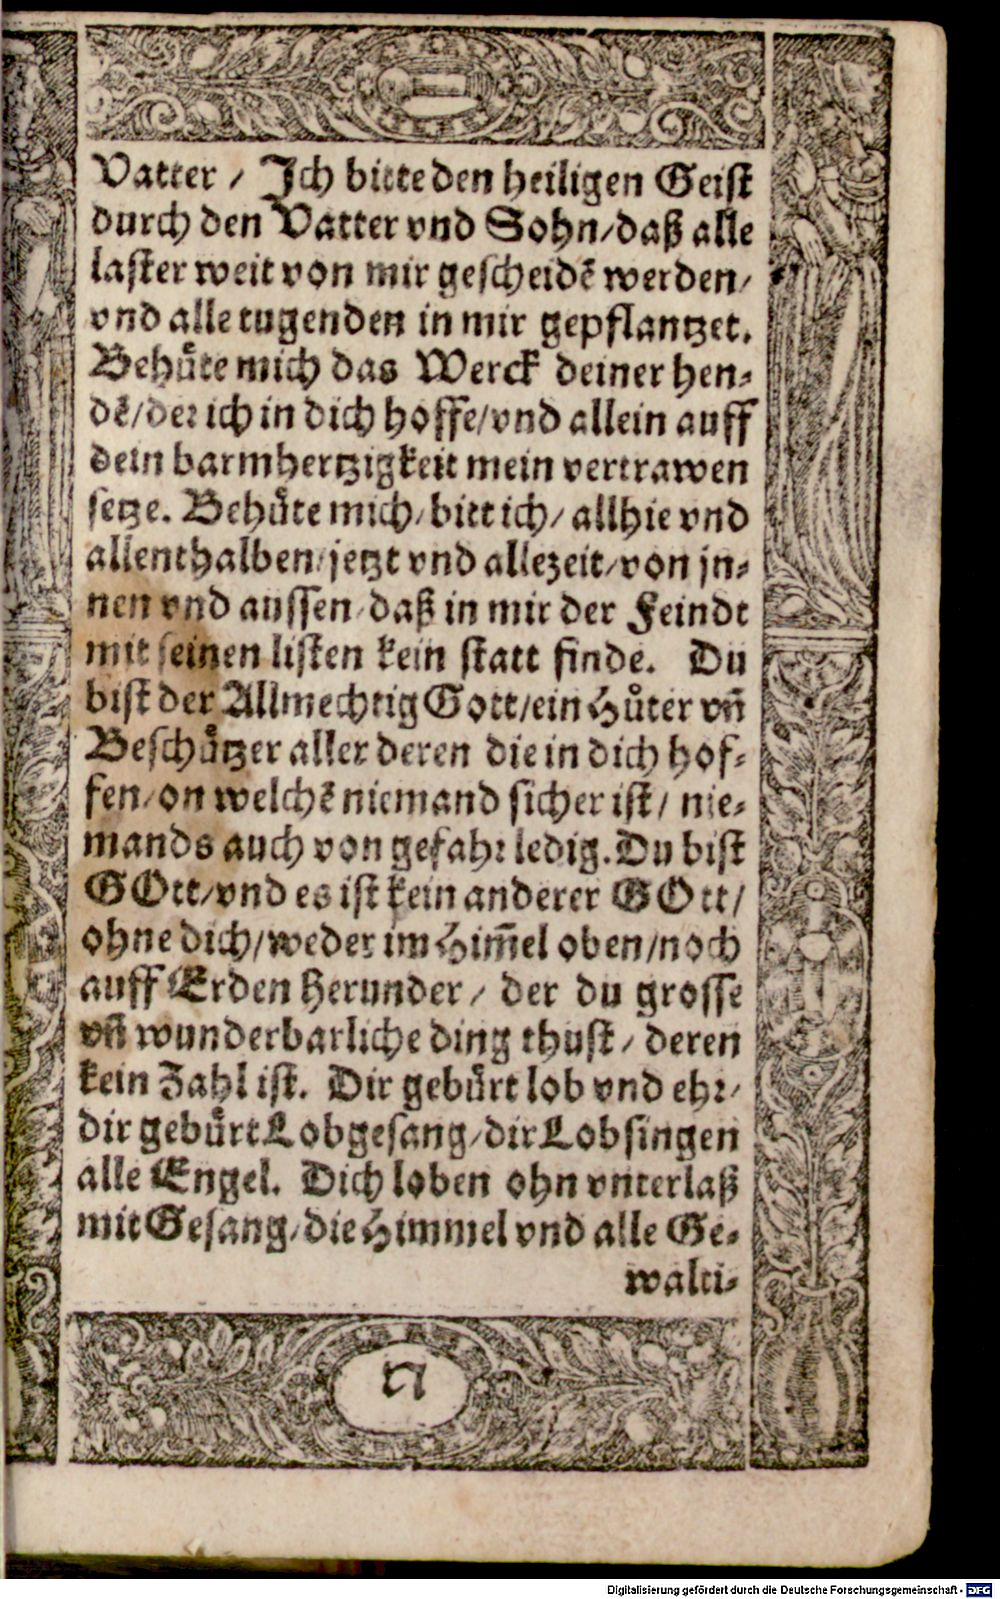 Vatter / Ich bitte den heiligen Geist
durch den Vatter vnd Sohn/daß alle
laster weit von mir gescheidẽ werden/
vnd alle tugenden in mir gepflantzet.
Behuͤte mich das Werck deiner hen-
dẽ/der ich in dich hoffe/vnd allein auff
dein barmhertzigkeit mein vertrawen
setze. Behuͤte mich/bitt ich/ allhie vnd
allenthalben/jetzt vnd allezeit/von jn-
nen vnd aussen/daß in mir der Feindt
mit seinen listen kein statt finde. Du
bist der Allmechtig Gott/ein Huͤter vñ
Beschuͤtzer aller deren die in dich hof-
fen/on welchẽ niemand sicher ist/ nie-
mands auch von gefahr ledig. Du bist
GOtt/vnd es ist kein anderer GOtt/
ohne dich/weder im Him̃el oben/noch
auff Erden herunder/ der du grosse
vñ wunderbarliche ding thust/ deren
kein Zahl ist. Dir gebuͤrt lob vnd ehr/
dir gebuͤrt Lobgesang/dir Lobsingen
alle Engel. Dich loben ohn vnterlaß
mit Gesang/die Himmel vnd alle Ge-
walti-
Digitalisierung gefördert durch die Deutsche Forschungsgemeinschaft - DFG